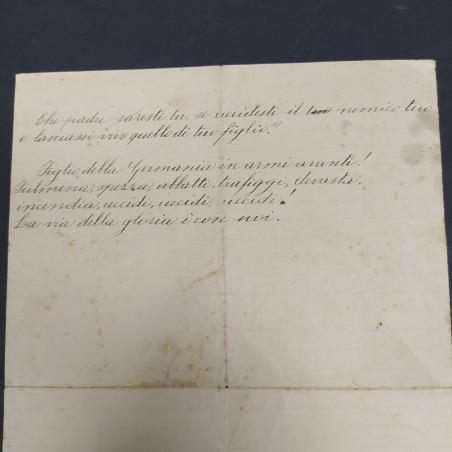 Che padre saresti tu, se uccidesti il tuo nemico tuo
e lasciassi viv quello di tuo figlio?
Figlio della Germania in armi avanti!
Fulmina, spezza, abbatte, trafiggi, devasta,
incendia, uccidi, uccidi, uccidi!
La via della gloria è con noi.